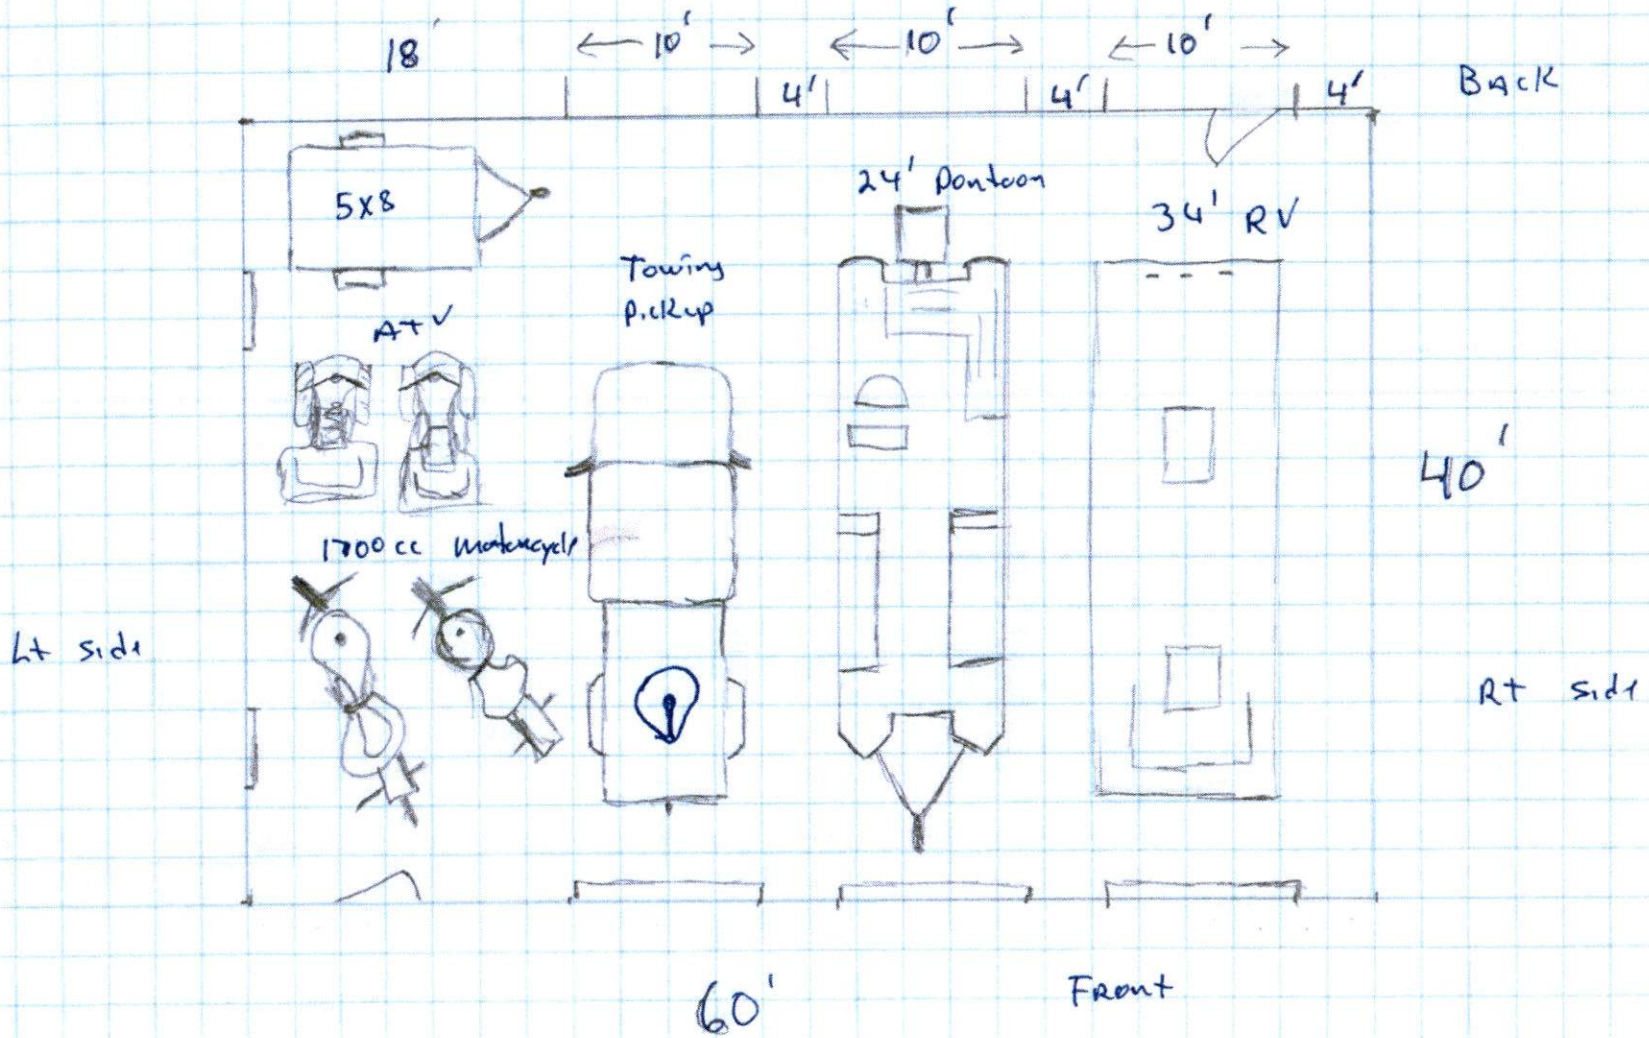 18' 10' 10' 10'
4' 4' 4' Back
24' Pontoon
5x8
34' RV
Towing
Pickup
ATV
40'
1700cc Motorcycle
Lt side
Rt side
Front
60'